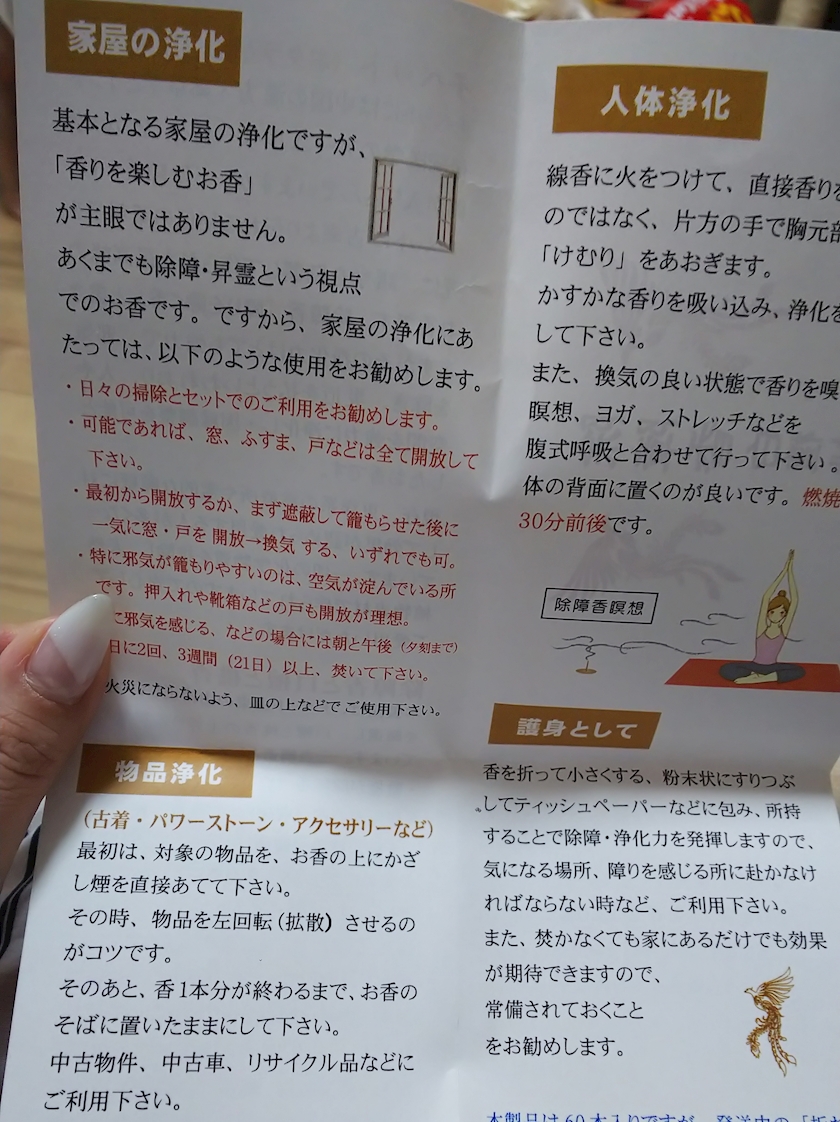 家屋の浄化
基本となる家屋の浄化ですが、
「香りを楽しむお香」
が主眼ではありません。
あくまでも除障・昇霊という視点
でのお香です。ですから、家屋の浄化にあ
たっては、以下のような使用をお勧めします。
・日々の掃除とセットでのご利用をお勧めします。
・可能であれば、窓、ふすま、戸などは全て開放して
下さい。
・最初から開放するか、まず遮蔽して籠もらせた後に
一気に窓・戸を 開放→換気 する、いずれでも可。
・特に邪気が籠もりやすいのは、空気が淀んでいる所
です。押入れや靴箱などの戸も開放が理想。
に邪気を感じる、などの場合には朝と午後（夕刻まで）
日に2回、3週間（21日）以上、焚いて下さい。
火災にならないよう、皿の上などでご使用下さい。
物品浄化
（古着・パワーストーン・アクセサリーなど）
最初は、対象の物品を、お香の上にかざ
し煙を直接あてて下さい。
その時、物品を左回転（拡散）させるの
がコツです。
そのあと、香1本分が終わるまで、お香の
そばに置いたままにして下さい。
中古物件、中古車、リサイクル品などに
ご利用下さい。
人体浄化
線香に火をつけて、直接香りを
のではなく、片方の手で胸元部
「けむり」をあおぎます。
かすかな香りを吸い込み、浄化を
して下さい。
また、換気の良い状態で香りを嗅
瞑想、ヨガ、ストレッチなどを
腹式呼吸と合わせて行って下さい。
体の背面に置くのが良いです。燃焼
30分前後です。
除障香瞑想
護身として
香を折って小さくする、粉末状にすりつぶ
してティッシュペーパーなどに包み、所持
することで除障・浄化力を発揮しますので、
気になる場所、障りを感じる所に赴かなけ
ればならない時など、ご利用下さい。
また、焚かなくても家にあるだけでも効果
が期待できますので、
常備されておくこと
をお勧めします。
本製品は60本入りですが、発送中の「折